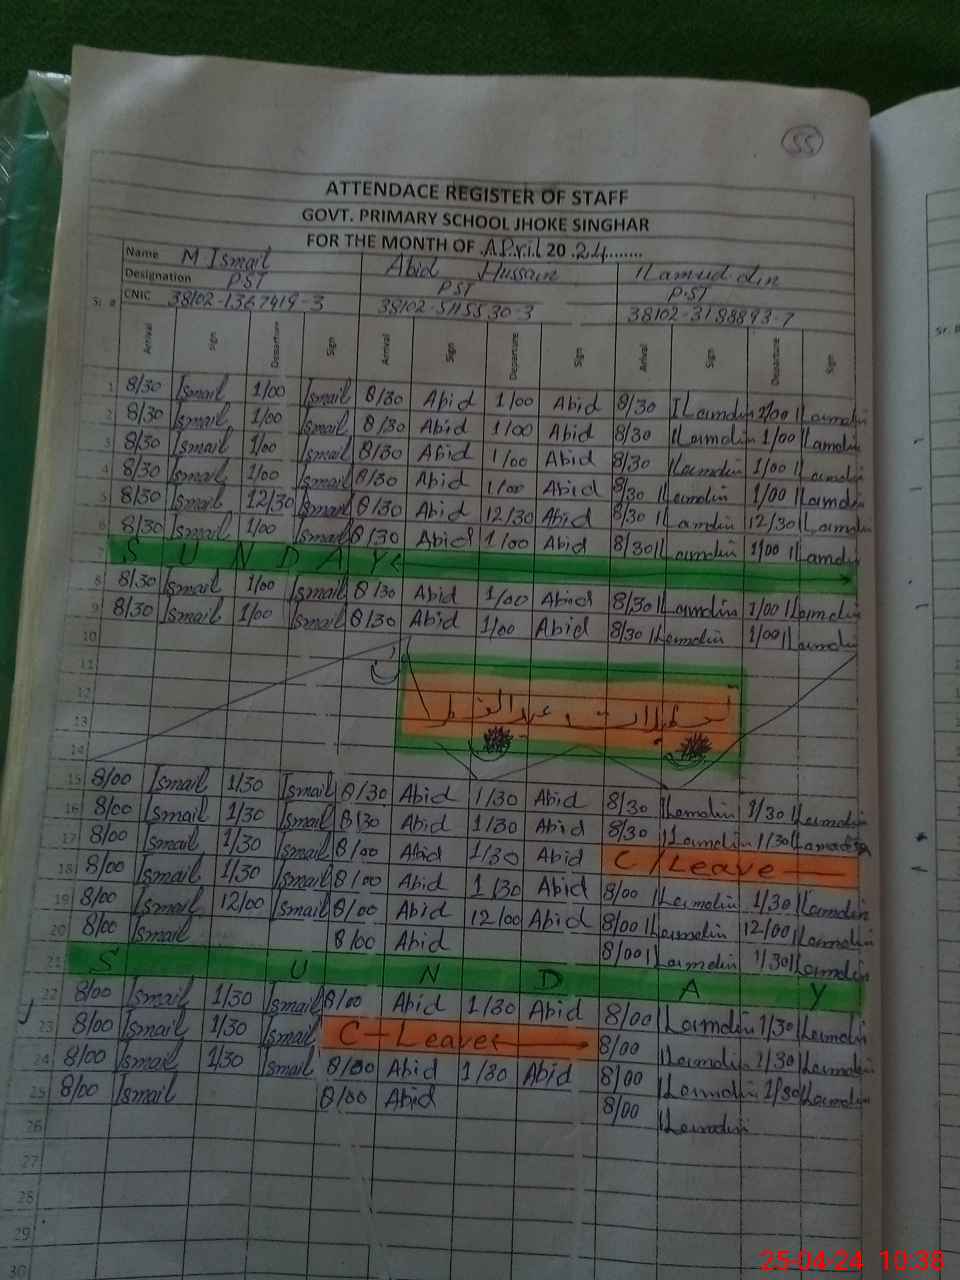 55
ATTENDACE REGISTER OF STAFF
GOVT. PRIMARY SCHOOL JHOKE SINGHAR
FOR THE MONTH OF .April 20 .24........
Name M Ismail Abid Hussain Ilamuddin
Designation PST PST PST
Sr. # CNIC 38102-1367419-3 38102-5115530-3 38102-3188893-7
Arrival sign Departure Sign Arrival Sign Departure Sign Arrival Sign Departure Sign
1 8/30 Ismail 1/00 Ismail 8/30 Abid 1/00 Abid 8/30 Ilamdin 1/00 Ilamdin
2 8/30 Ismail 1/00 Ismail 8/30 Abid 1/00 Abid 8/30 Ilamdin 1/00 Ilamdin
3 8/30 Ismail 1/00 Ismail 8/30 Abid 1/00 Abid 8/30 Ilamdin 1/00 Ilamdin
4 8/30 Ismail 1/00 Ismail 8/30 Abid 1/00 Abid 8/30 Ilamdin 1/00 Ilamdin
5 8/30 Ismail 12/30 Ismail 8/30 Abid 12/30 Abid 8/30 Ilamdin 12/30 Ilamdin
6 8/30 Ismail 1/00 Ismail 8/30 Abid 1/00 Abid 8/30 Ilamdin 1/00 Ilamdin
7 SUNDAY
8 8/30 Ismail 1/00 Ismail 8/30 Abid 1/00 Abid 8/30 Ilamdin 1/00 Ilamdin
9 8/30 Ismail 1/00 Ismail 8/30 Abid 1/00 Abid 8/30 Ilamdin 1/00 Ilamdin
10
11
12
تعطیلات عیدالفطر
13
14
15 8/00 Ismail 1/30 Ismail 8/30 Abid 1/30 Abid 8/30 Ilamdin 1/30 Ilamdin
16 8/00 Ismail 1/30 Ismail 8/30 Abid 1/30 Abid 8/30 Ilamdin 1/30 Ilamdin
17 8/00 Ismail 1/30 Ismail 8/00 Abid 1/30 Abid C/Leave
18 8/00 Ismail 1/30 Ismail 8/00 Abid 1/30 Abid 8/00 Ilamdin 1/30 Ilamdin
19 8/00 Ismail 12/00 Ismail 8/00 Abid 12/00 Abid 8/00 Ilamdin 12/00 Ilamdin
20 8/00 Ismail 8/00 Abid 8/00 Ilamdin 1/30 Ilamdin
21 SUNDAY
22 8/00 Ismail 1/30 Ismail 8/00 Abid 1/30 Abid 8/00 Ilamdin 1/30 Ilamdin
23 8/00 Ismail 1/30 Ismail C-Leave 8/00 Ilamdin 1/30 Ilamdin
24 8/00 Ismail 1/30 Ismail 8/00 Abid 1/30 Abid 8/00 Ilamdin 1/30 Ilamdin
25 8/00 Ismail 8/00 Abid 8/00 Ilamdin
26
27
28
29
30
Sr. #
25-04-24 10:38